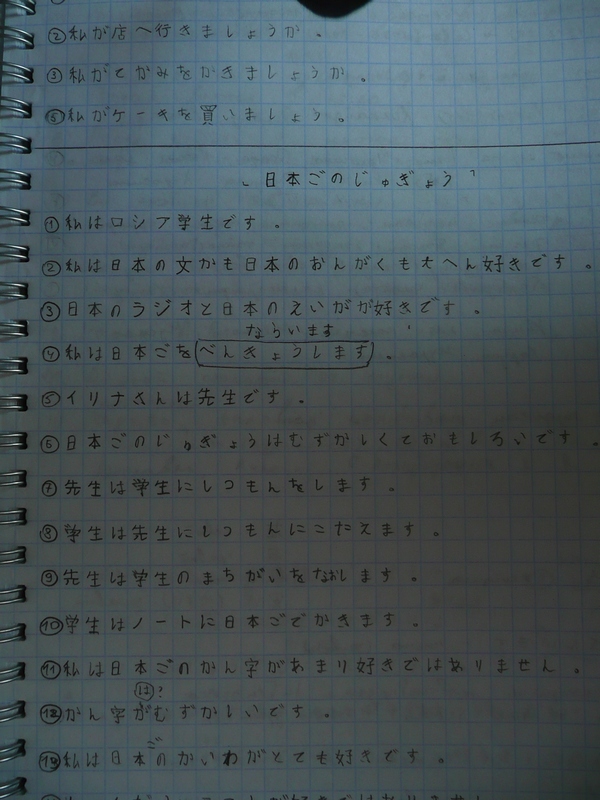 ②私が店へ行きましょうか。
③私がてがみをかきましょうか。
⑤私がケーキを買いましょう。
「日本ごのじゅぎょう」
①私はロシア学生です。
②私は日本の文かも日本のおんがくも大へん好きです。
③日本のラジオと日本のえいがが好きです。
ならいます
④私は日本ごをべんきょうします。
⑤イリナさんは先生です。
⑥日本ごのじゅぎょうはむずかしくておもしろいです。
⑦先生は学生にしつもんをします。
⑧学生は先生にしつもんにこたえます。
⑨先生は学生のまちがいをなおします。
⑩学生はノートに日本ごでかきます。
⑪私は日本ごのかん字があまり好きではありません。
は?
⑫かん字がむずかしいです。
ご
⑬私は日本のかいわがとても好きです。